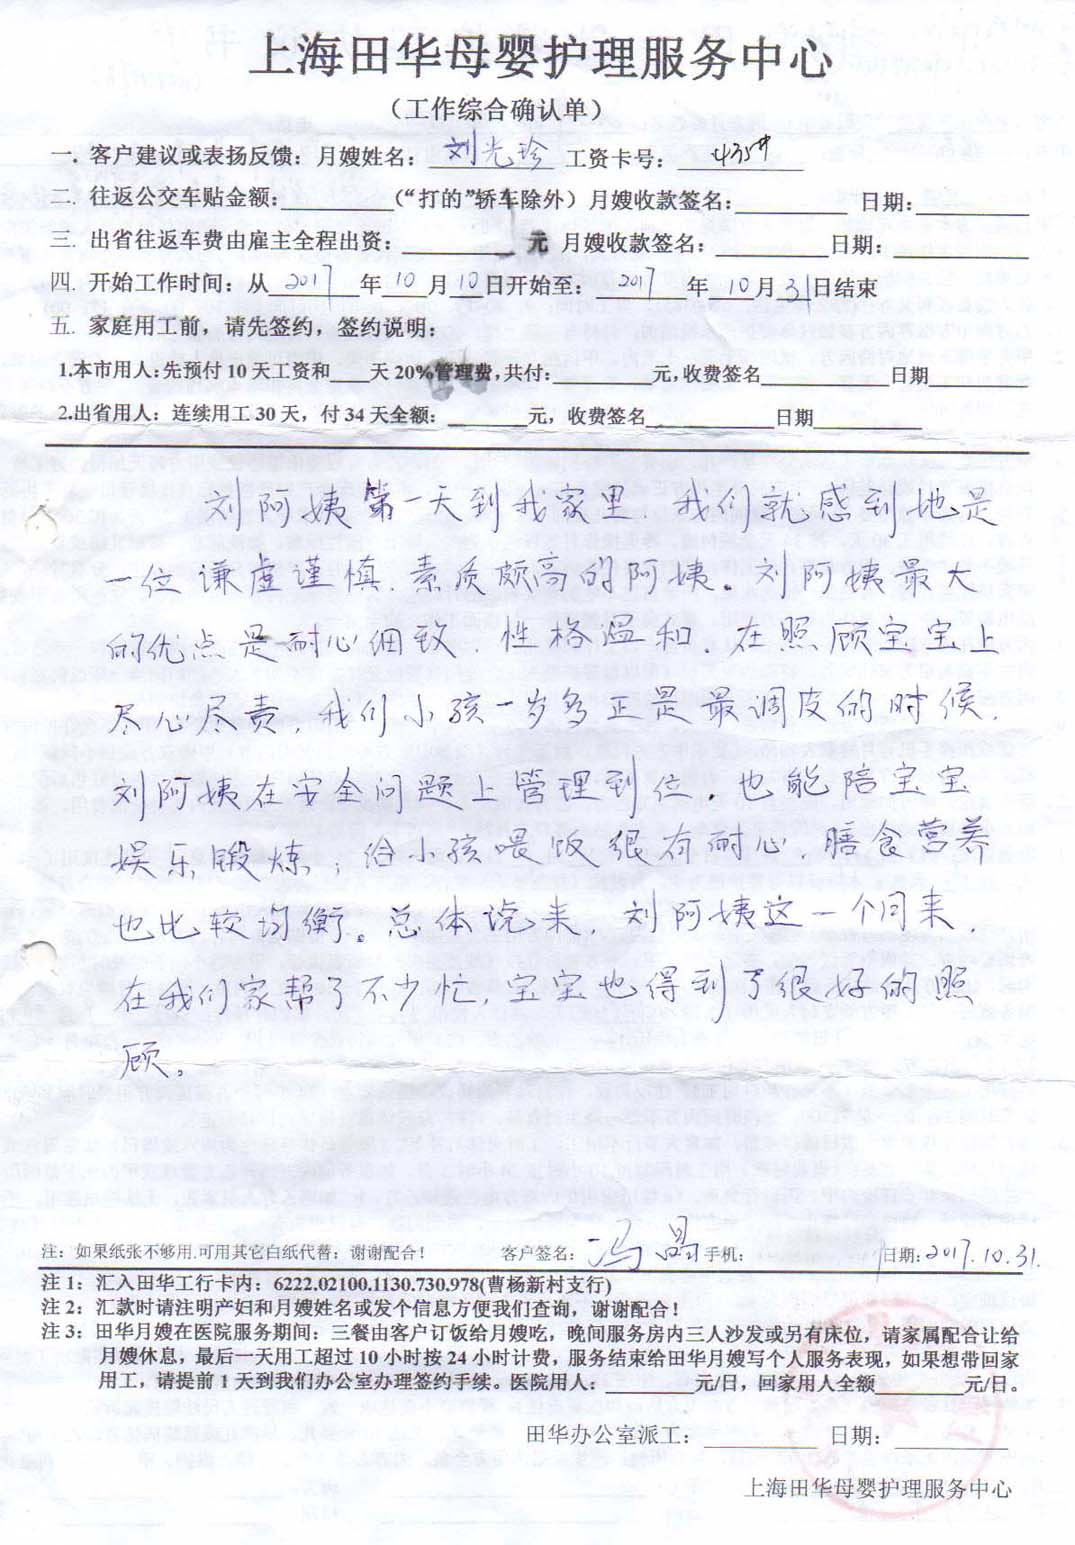 上海田华母婴护理服务中心
（工作综合确认单）
一. 客户建议或表扬反馈：月嫂姓名：刘光珍 工资卡号：4354
二. 往返公交车贴金额：（“打的”轿车除外）月嫂收款签名： 日期：
三. 出省往返车费由雇主全程出资： 元 月嫂收款签名： 日期：
四. 开始工作时间：从 2017 年 10 月 10 日开始至：2017 年 10 月 31 日结束
五. 家庭用工前，请先签约，签约说明：
1.本市用人：先预付 10 天工资和 天 20%管理费，共付： 元，收费签名 日期
2.出省用人：连续用工 30 天，付 34 天全额： 元，收费签名 日期
刘阿姨第一天到我家里，我们就感到她是
一位谦虚谨慎，素质颇高的阿姨。刘阿姨最大
的优点是耐心细致，性格温和，在照顾宝宝上
尽心尽责，我们小孩一岁多正是最调皮的时候，
刘阿姨在安全问题上管理到位，也能陪宝宝
娱乐段炼，给小孩喂饭很有耐心，膳食营养
也比较均衡。总体说来，刘阿姨这一个月来，
在我们家帮了不少忙，宝宝也得到了很好的照
顾。
注：如果纸张不够用.可用其它白纸代替；谢谢配合！ 客户签名：冯 手机： 日期：2017.10.31.
注 1：汇入田华工行卡内：6222.02100.1130.730.978(曹杨新村支行)
注 2：汇款时请注明产妇和月嫂姓名或发个信息方便我们查询，谢谢配合！
注 3：田华月嫂在医院服务期间：三餐由客户订饭给月嫂吃，晚间服务房内三人沙发或另有床位，请家属配合让给
月嫂休息，最后一天用工超过 10 小时按 24 小时计费，服务结束给田华月嫂写个人服务表现，如果想带回家
用工，请提前 1 天到我们办公室办理签约手续。医院用人： 元/日，回家用人全额 元/日。
田华办公室派工： 日期：
上海田华母婴护理服务中心